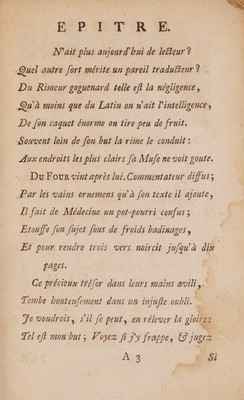 EPITRE.
N'ait plus aujourd'hui de lecteur ?
Quel autre ſort mérite un pareil traducteur ?
Du Rimeur goguenard telle eſt la négligence,
Qu'à moins que du Latin on n'ait l'intelligence,
De ſon caquet énorme on tire peu de fruit.
Souvent loin de ſon but la rime le conduit :
Aux endroits les plus clairs ſa Muſe ne voit goute.
DU FOUR vint après lui. Commentateur diffus ;
Par les vains ornemens qu'à ſon texte il ajoute,
Il fait de Médecine un pot-pourri confus ;
Etouffe ſon ſujet ſous de froids badinages,
Et pour rendre trois vers noircit juſqu'à dix
pages.
Ce précieux tréſor dans leurs mains avili,
Tombe honteuſement dans un injuſte oubli.
Je voudrois, s'il ſe peut, en rélever la gloire :
Tel eſt mon but ; Voyez ſi j'y frappe, & jugez
A 3
Si